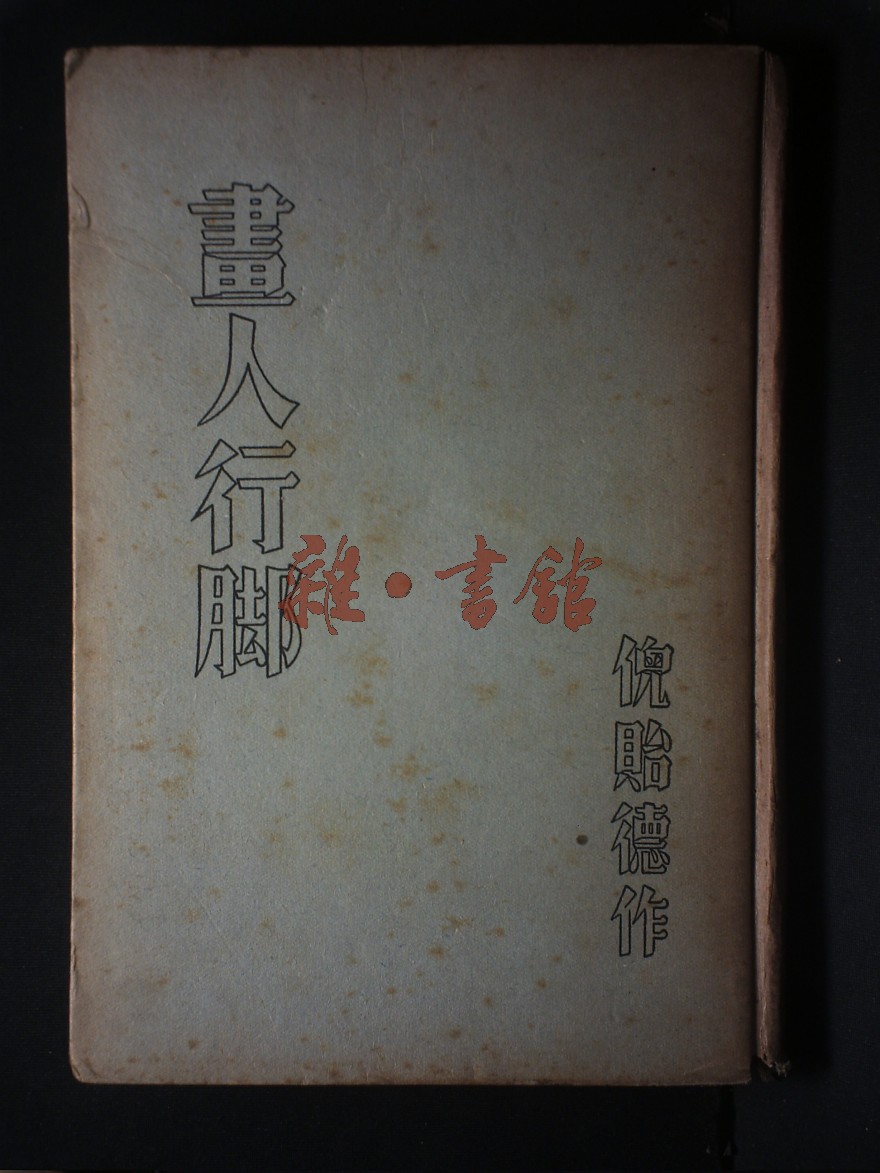 畫人行脚
倪貽德作
雜·書館